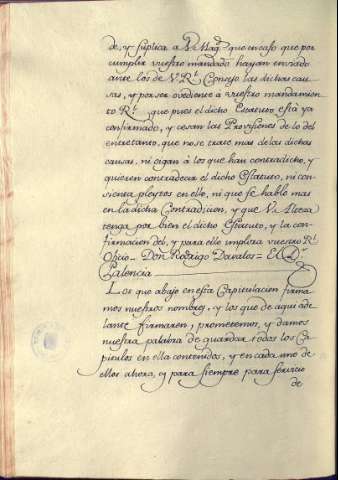 de, y suplica a V. Magd. que en caso que por
cumplir vuestro mandado hayan enviado
ante los de V. Rl. Consejo las dichas cau-
sas, y por ser obediente a vuestro mandamien-
to Rl. que pues el dicho Estatuto está ya
confirmado, y cesan las Provisiones de lo del
entretanto, que no se trate mas de las dichas
causas, ni oigan á los que han contradicho, y
quieren contradecir el dicho Estatuto, ni con-
sienta pleytos en ello, ni que se hable mas
en la dicha Contradicion, y que V. Alteza
tenga por bien el dicho Estatuto, y la con-
firmacion del, y para ello implora vuestro Rl.
Oficio = Don Rodrigo Davalos = El Dr.
Palencia
Los que abajo en esta Capitulacion firma-
mos nuestros nombres, y los que de aqui ade-
lante firmaren, prometemos, y damos
nuestra palabra de guardar todos los Ca-
pitulos en ella contenidos, y en cada uno de
ellos ahora, y para siempre para servicio
de